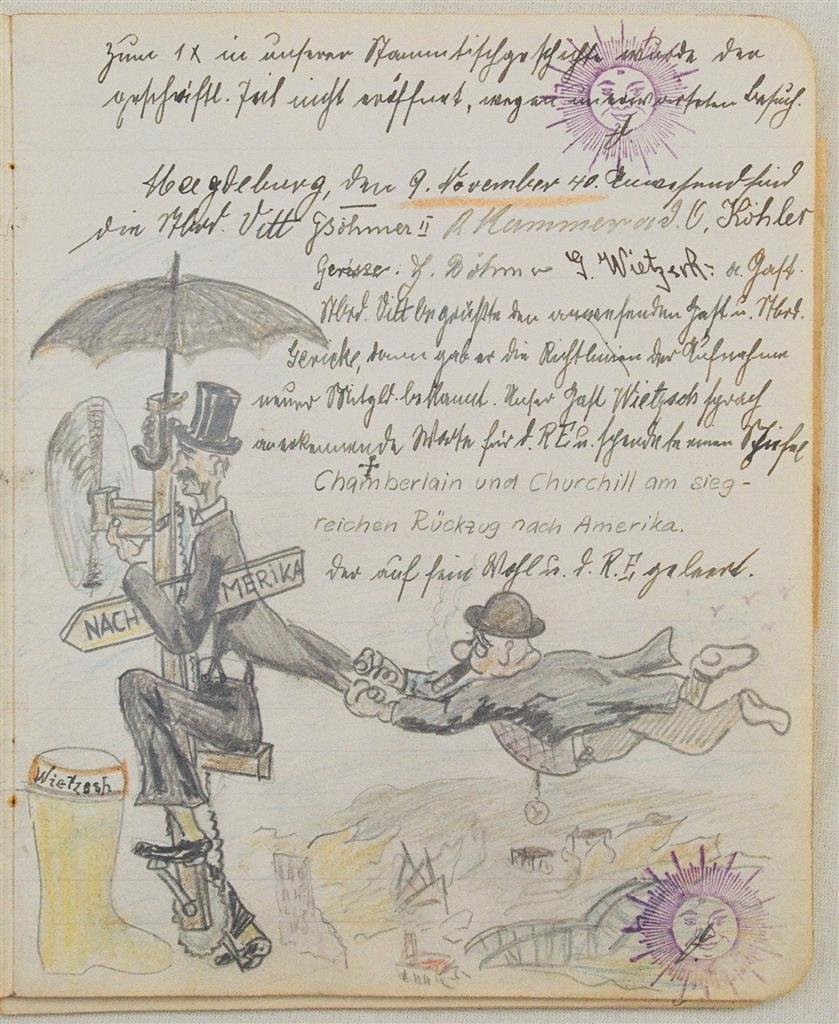 Zum 1x in unserer Stammtischgeschichte wurde der
geschäftl. Teil nicht eröffnet, wegen unerwarteten Besuch.
Magdeburg, den 9. November 40. Anwesend sind
die Stbrd. Vitt Böhmer II R Hammer a. d. O, Köhler
Gericke. H. Böhmer G. Wietzsch. a. Gast.
Stbrd. Vitt begrüßte den anwesenden Gast u. Stbrd.
Gericke, dann gab er die Richtlinien der Aufnahme
neuer Mitgld. bekannt. Unser Gast Wietzsch sprach
anerkennende Worte für d. R.E. u. spendete einen Stiefel
Chamberlain und Churchill am sieg-
reichen Rückzug nach Amerika.
der auf sein Wohl u. d. R.E. geleert.
NACH MERIKA
Wietzsch